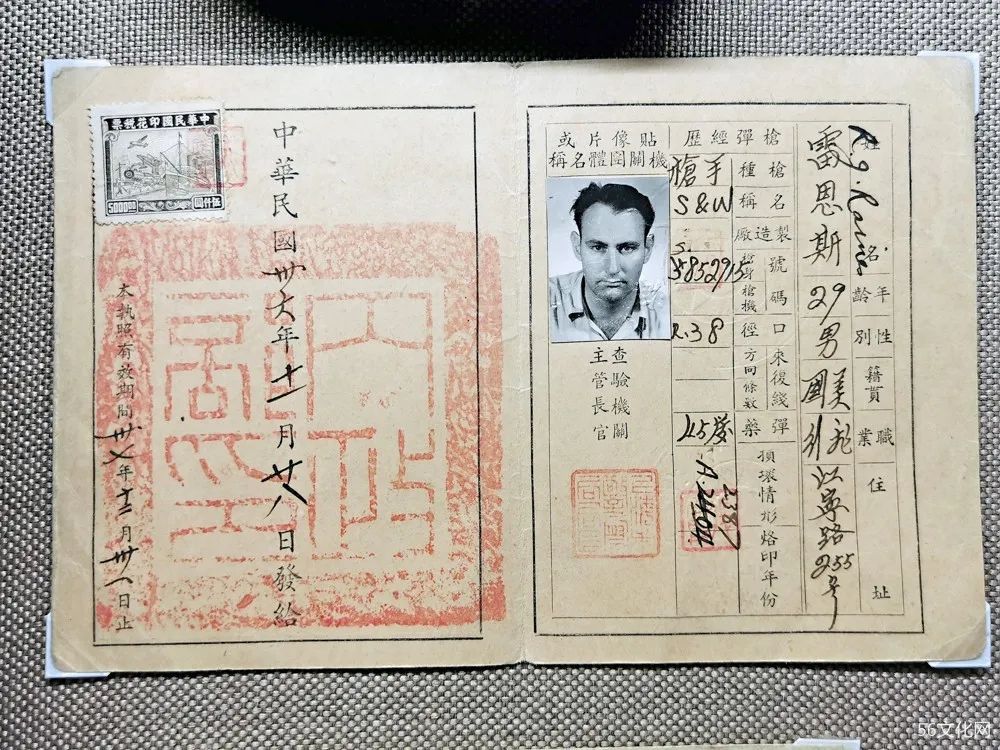 姓名
雷恩斯
年齡
29
性別
男
籍貫
美國
職業
飛行
住址
江寧路255号
槍彈經歷
槍種
手槍
名稱
S&W
製造廠
號碼
槍身槍機
S.
5852915
口徑
.38
來復綫
方向條數
彈藥
45發
頂環情形
烙印年份
2387
貼像片或
機關團體名稱
查驗機關
主管長官
中華民國卅六年十一月廿八日發給
本執照有效期間卅七年十二月卅一日止
中華民國印花稅票
伍仟圓
5000.00
內政部印
56文化网